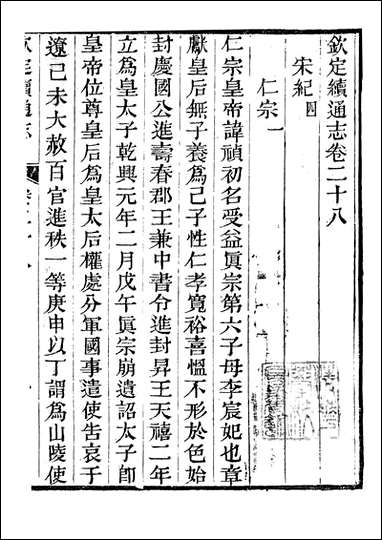 欽定續通志卷二十八
宋紀四
仁宗一
仁宗皇帝諱禎初名受益眞宗第六子母李宸妃也章
獻皇后無子養爲己子性仁孝寬裕喜慍不形於色始
封慶國公進壽春郡王兼中書令進封昇王天禧二年
立爲皇太子乾興元年二月戊午眞宗崩遺詔太子卽
皇帝位尊皇后爲皇太后權處分軍國事遣使吿哀于
遼己未大赦百官進秩一等庚申以丁謂爲山陵使
欽定續通志